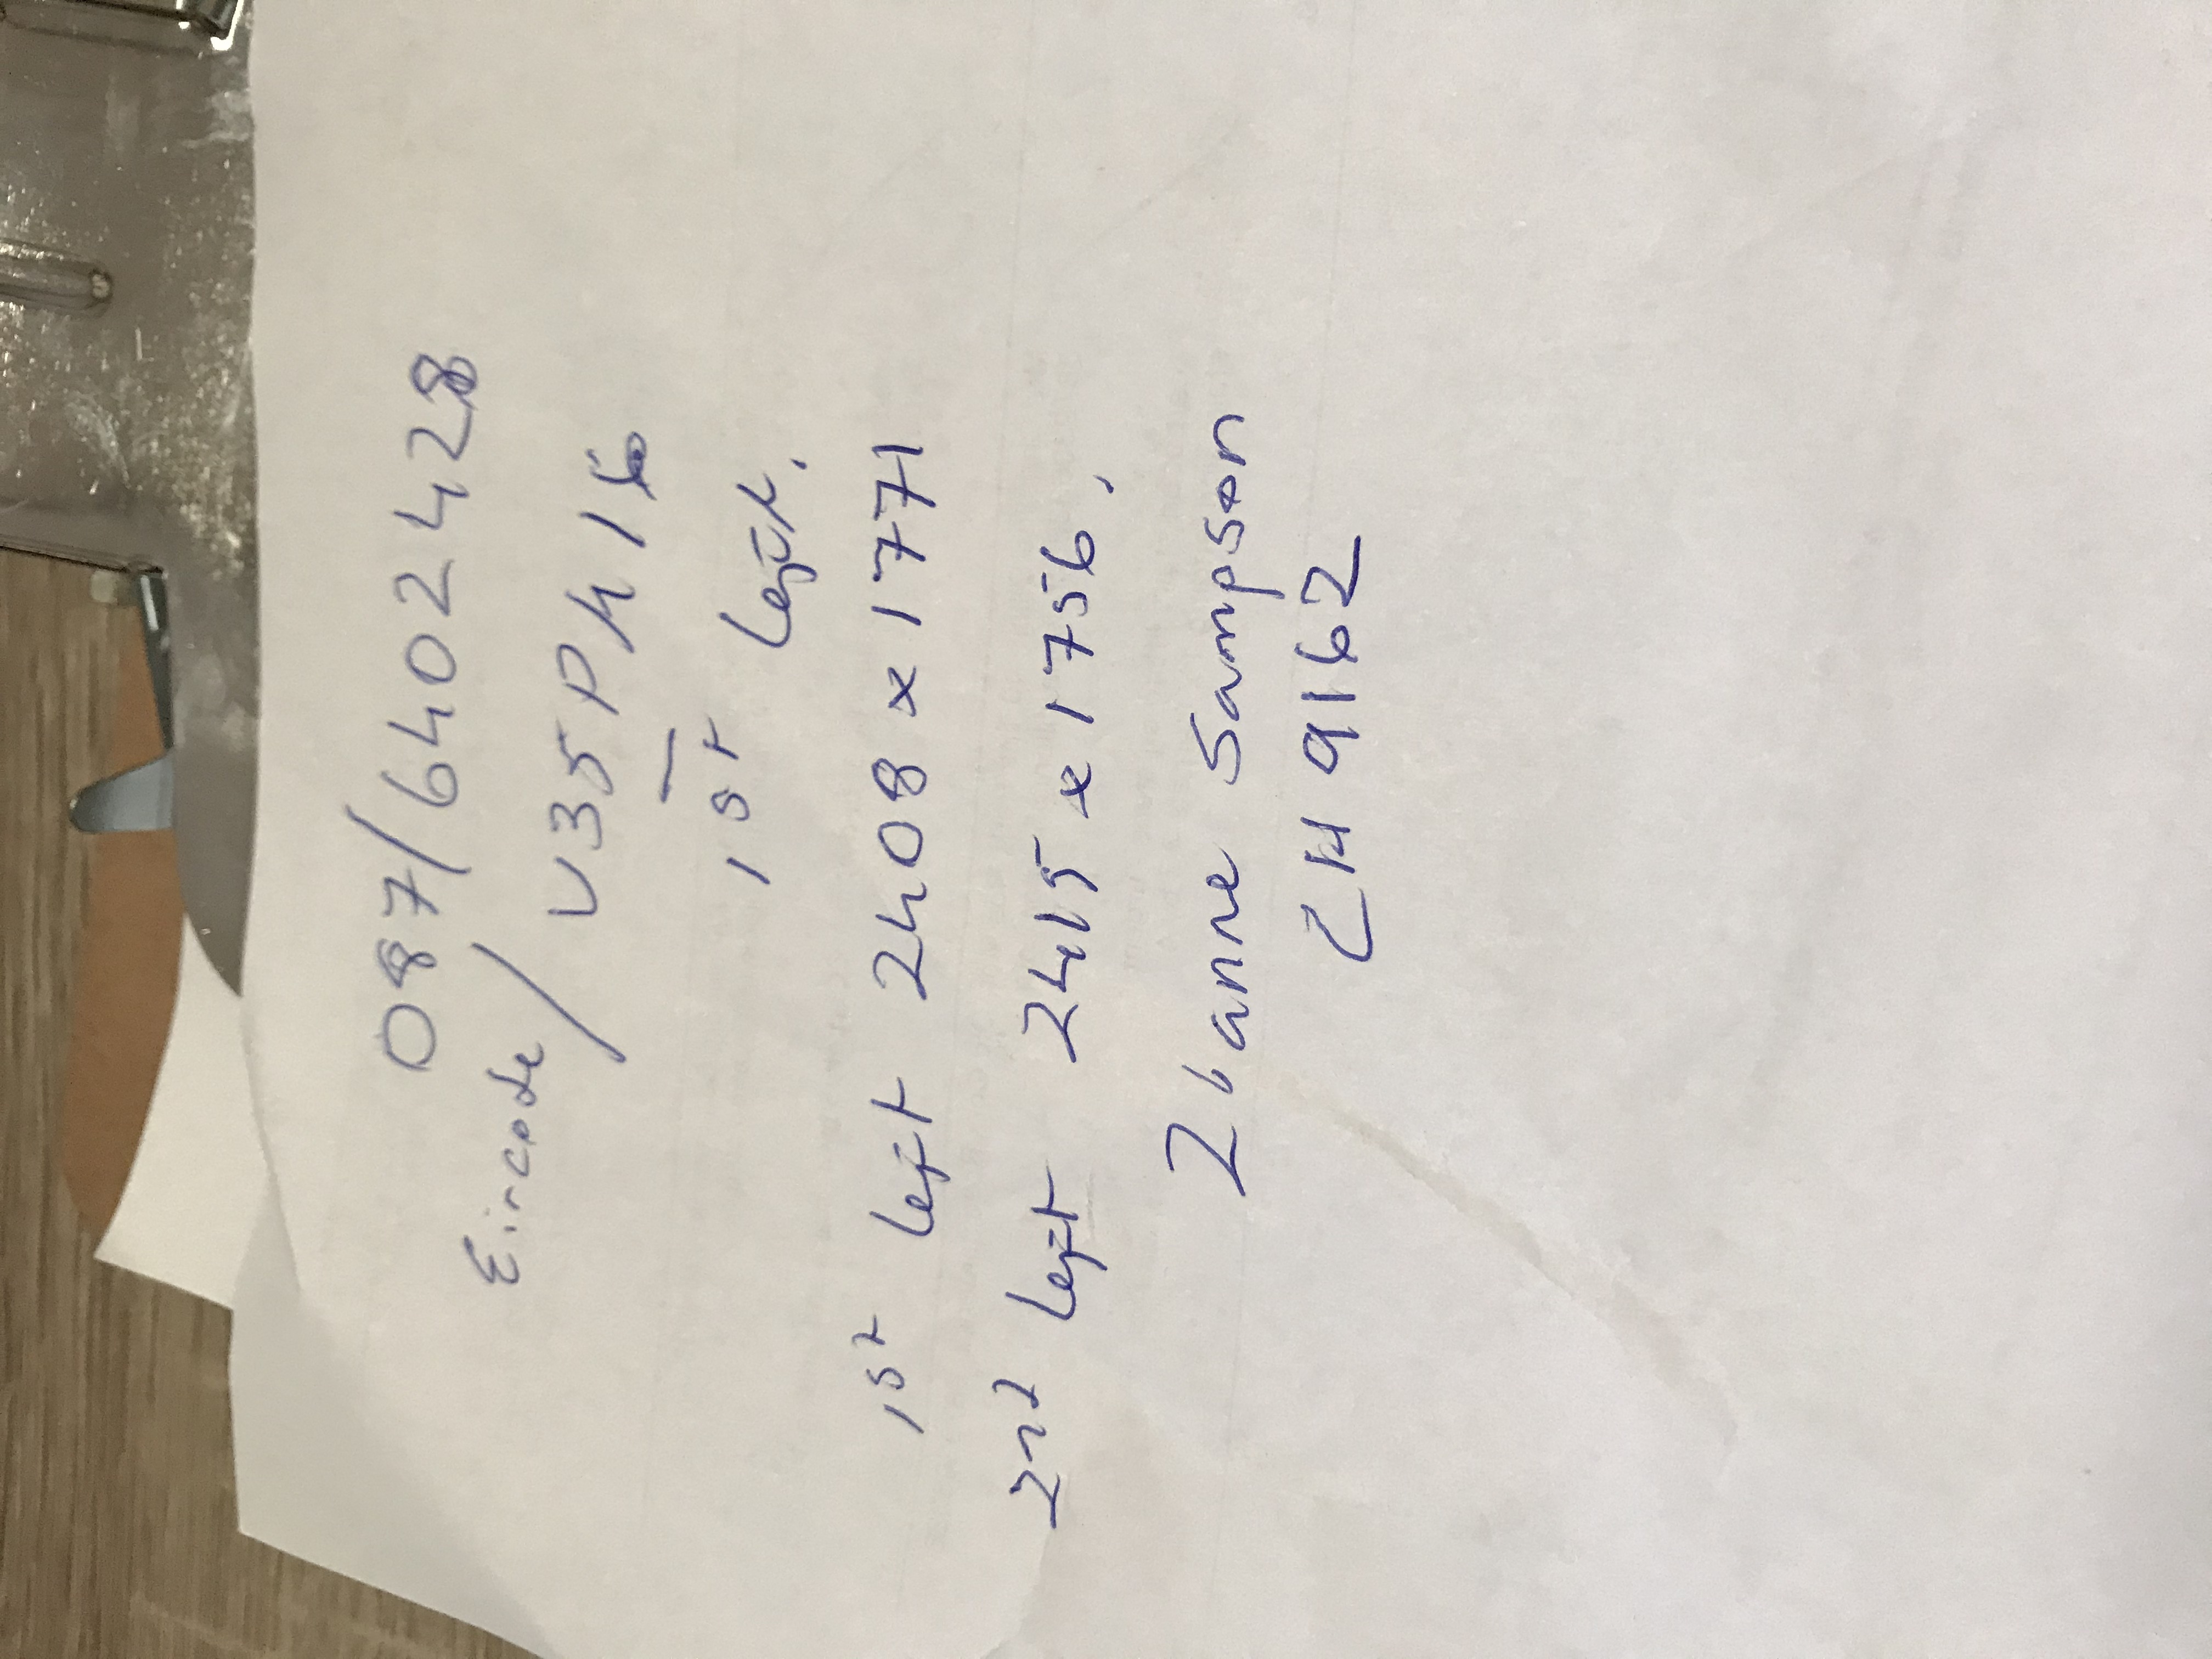 087/6402428
Eircode / V35PK16
1st Left.
1st Left 2408 x 1771
2nd Left 2415 x 1756.
anne Sampson
9162